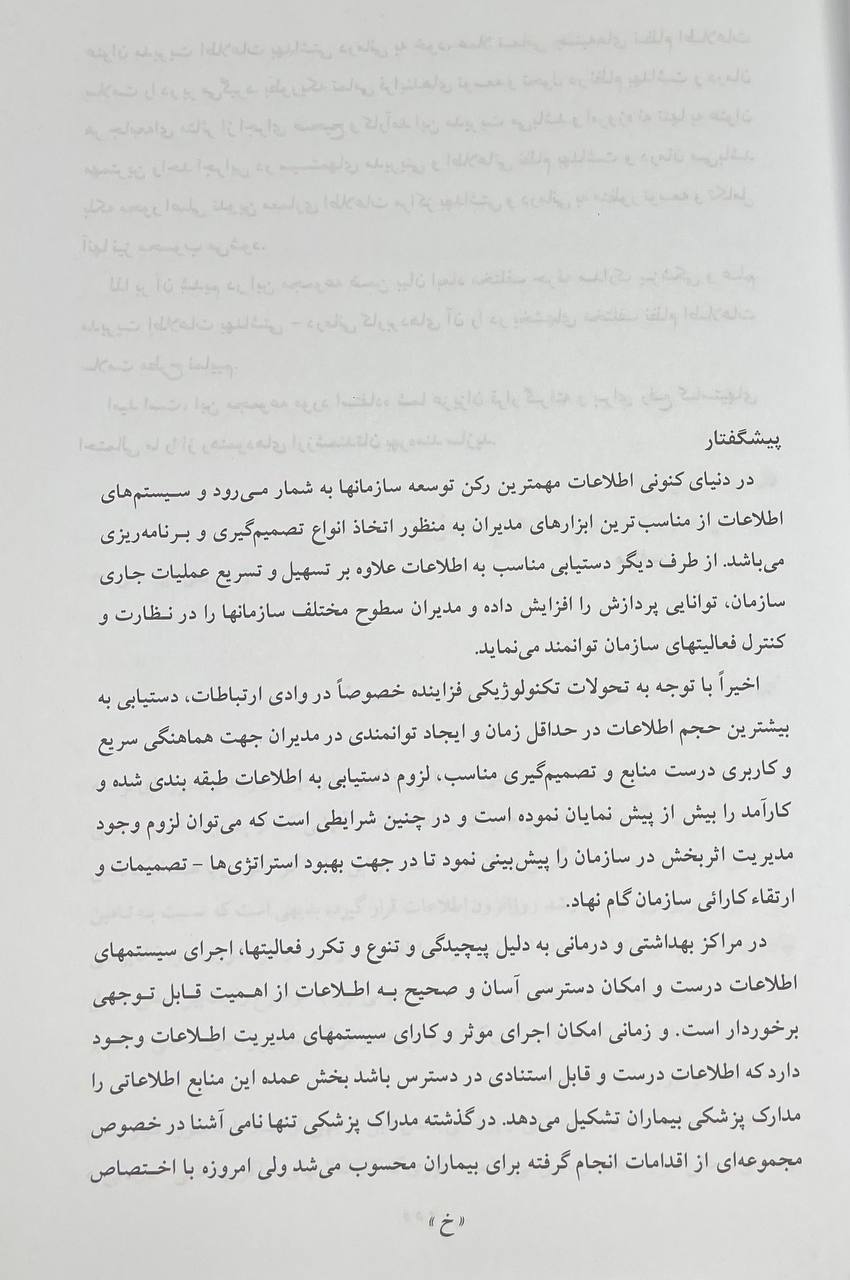 پیشگفتار
در دنیای کنونی اطلاعات مهمترین رکن توسعه سازمانها به شمار می‌رود و سیستم‌های
اطلاعات از مناسب‌ترین ابزارهای مدیران به منظور اتخاذ انواع تصمیم‌گیری و برنامه‌ریزی
می‌باشد. از طرف دیگر دستیابی مناسب به اطلاعات علاوه بر تسهیل و تسریع عملیات جاری
سازمان، توانایی پردازش را افزایش داده و مدیران سطوح مختلف سازمانها را در نظارت و
کنترل فعالیتهای سازمان توانمند می‌نماید.
اخیراً با توجه به تحولات تکنولوژیکی فزاینده خصوصاً در وادی ارتباطات، دستیابی به
بیشترین حجم اطلاعات در حداقل زمان و ایجاد توانمندی در مدیران جهت هماهنگی سریع
و کاربری درست منابع و تصمیم‌گیری مناسب، لزوم دستیابی به اطلاعات طبقه بندی شده و
کارآمد را بیش از پیش نمایان نموده است و در چنین شرایطی است که می‌توان لزوم وجود
مدیریت اثربخش در سازمان را پیش‌بینی نمود تا در جهت بهبود استراتژی‌ها – تصمیمات و
ارتقاء کارائی سازمان گام نهاد.
در مراکز بهداشتی و درمانی به دلیل پیچیدگی و تنوع و تکرر فعالیتها، اجرای سیستمهای
اطلاعات درست و امکان دسترسی آسان و صحیح به اطلاعات از اهمیت قابل توجهی
برخوردار است. و زمانی امکان اجرای موثر و کارای سیستمهای مدیریت اطلاعات وجود
دارد که اطلاعات درست و قابل استنادی در دسترس باشد بخش عمده این منابع اطلاعاتی را
مدارک پزشکی بیماران تشکیل می‌دهد. در گذشته مدراک پزشکی تنها نامی آشنا در خصوص
مجموعه‌ای از اقدامات انجام گرفته برای بیماران محسوب می‌شد ولی امروزه با اختصاص
« خ »